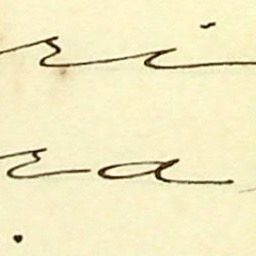 ri
ra
.